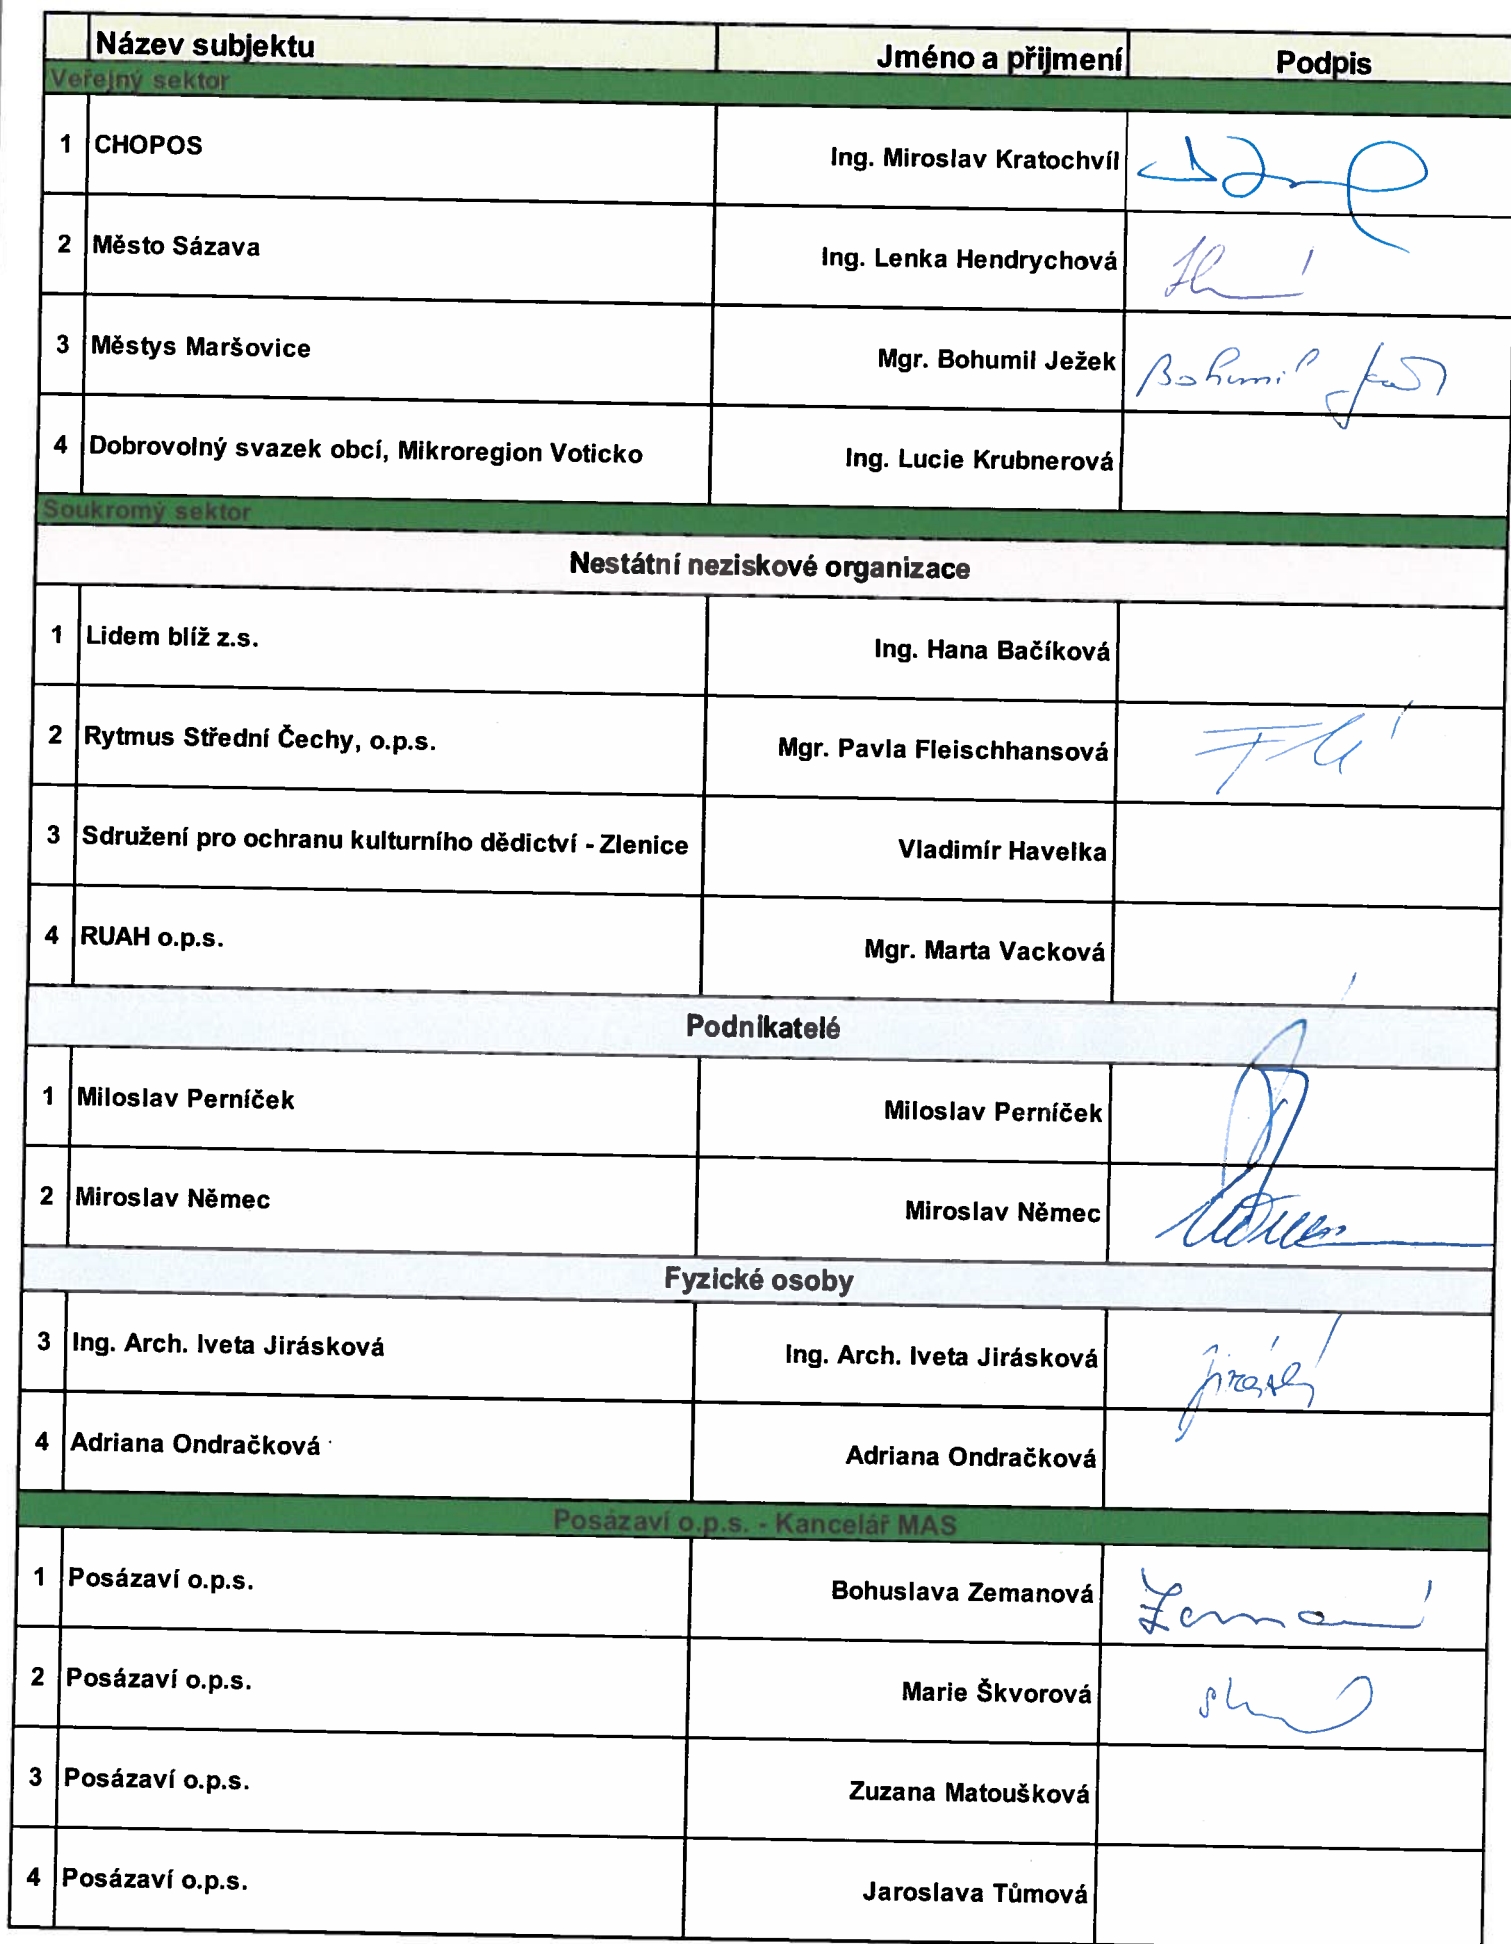 Název subjektu Jméno a přijmení Podpis
Veřejný sektor
1 CHOPOS Ing. Miroslav Kratochvíl
2 Město Sázava Ing. Lenka Hendrychová
3 Městys Maršovice Mgr. Bohumil Ježek Bohumil
4 Dobrovolný svazek obcí, Mikroregion Voticko Ing. Lucie Krubnerová
Soukromý sektor
Nestátní neziskové organizace
1 Lidem blíž z.s. Ing. Hana Bačíková
2 Rytmus Střední Čechy, o.p.s. Mgr. Pavla Fleischhansová
3 Sdružení pro ochranu kulturního dědictví - Zlenice Vladimír Havelka
4 RUAH o.p.s. Mgr. Marta Vacková
Podnikatelé
1 Miloslav Perníček Miloslav Perníček
2 Miroslav Němec Miroslav Němec
Fyzické osoby
3 Ing. Arch. Iveta Jirásková Ing. Arch. Iveta Jirásková
4 Adriana Ondračková Adriana Ondračková
Posázaví o.p.s. - Kancelář MAS
1 Posázaví o.p.s. Bohuslava Zemanová
2 Posázaví o.p.s. Marie Škvorová
3 Posázaví o.p.s. Zuzana Matoušková
4 Posázaví o.p.s. Jaroslava Tůmová